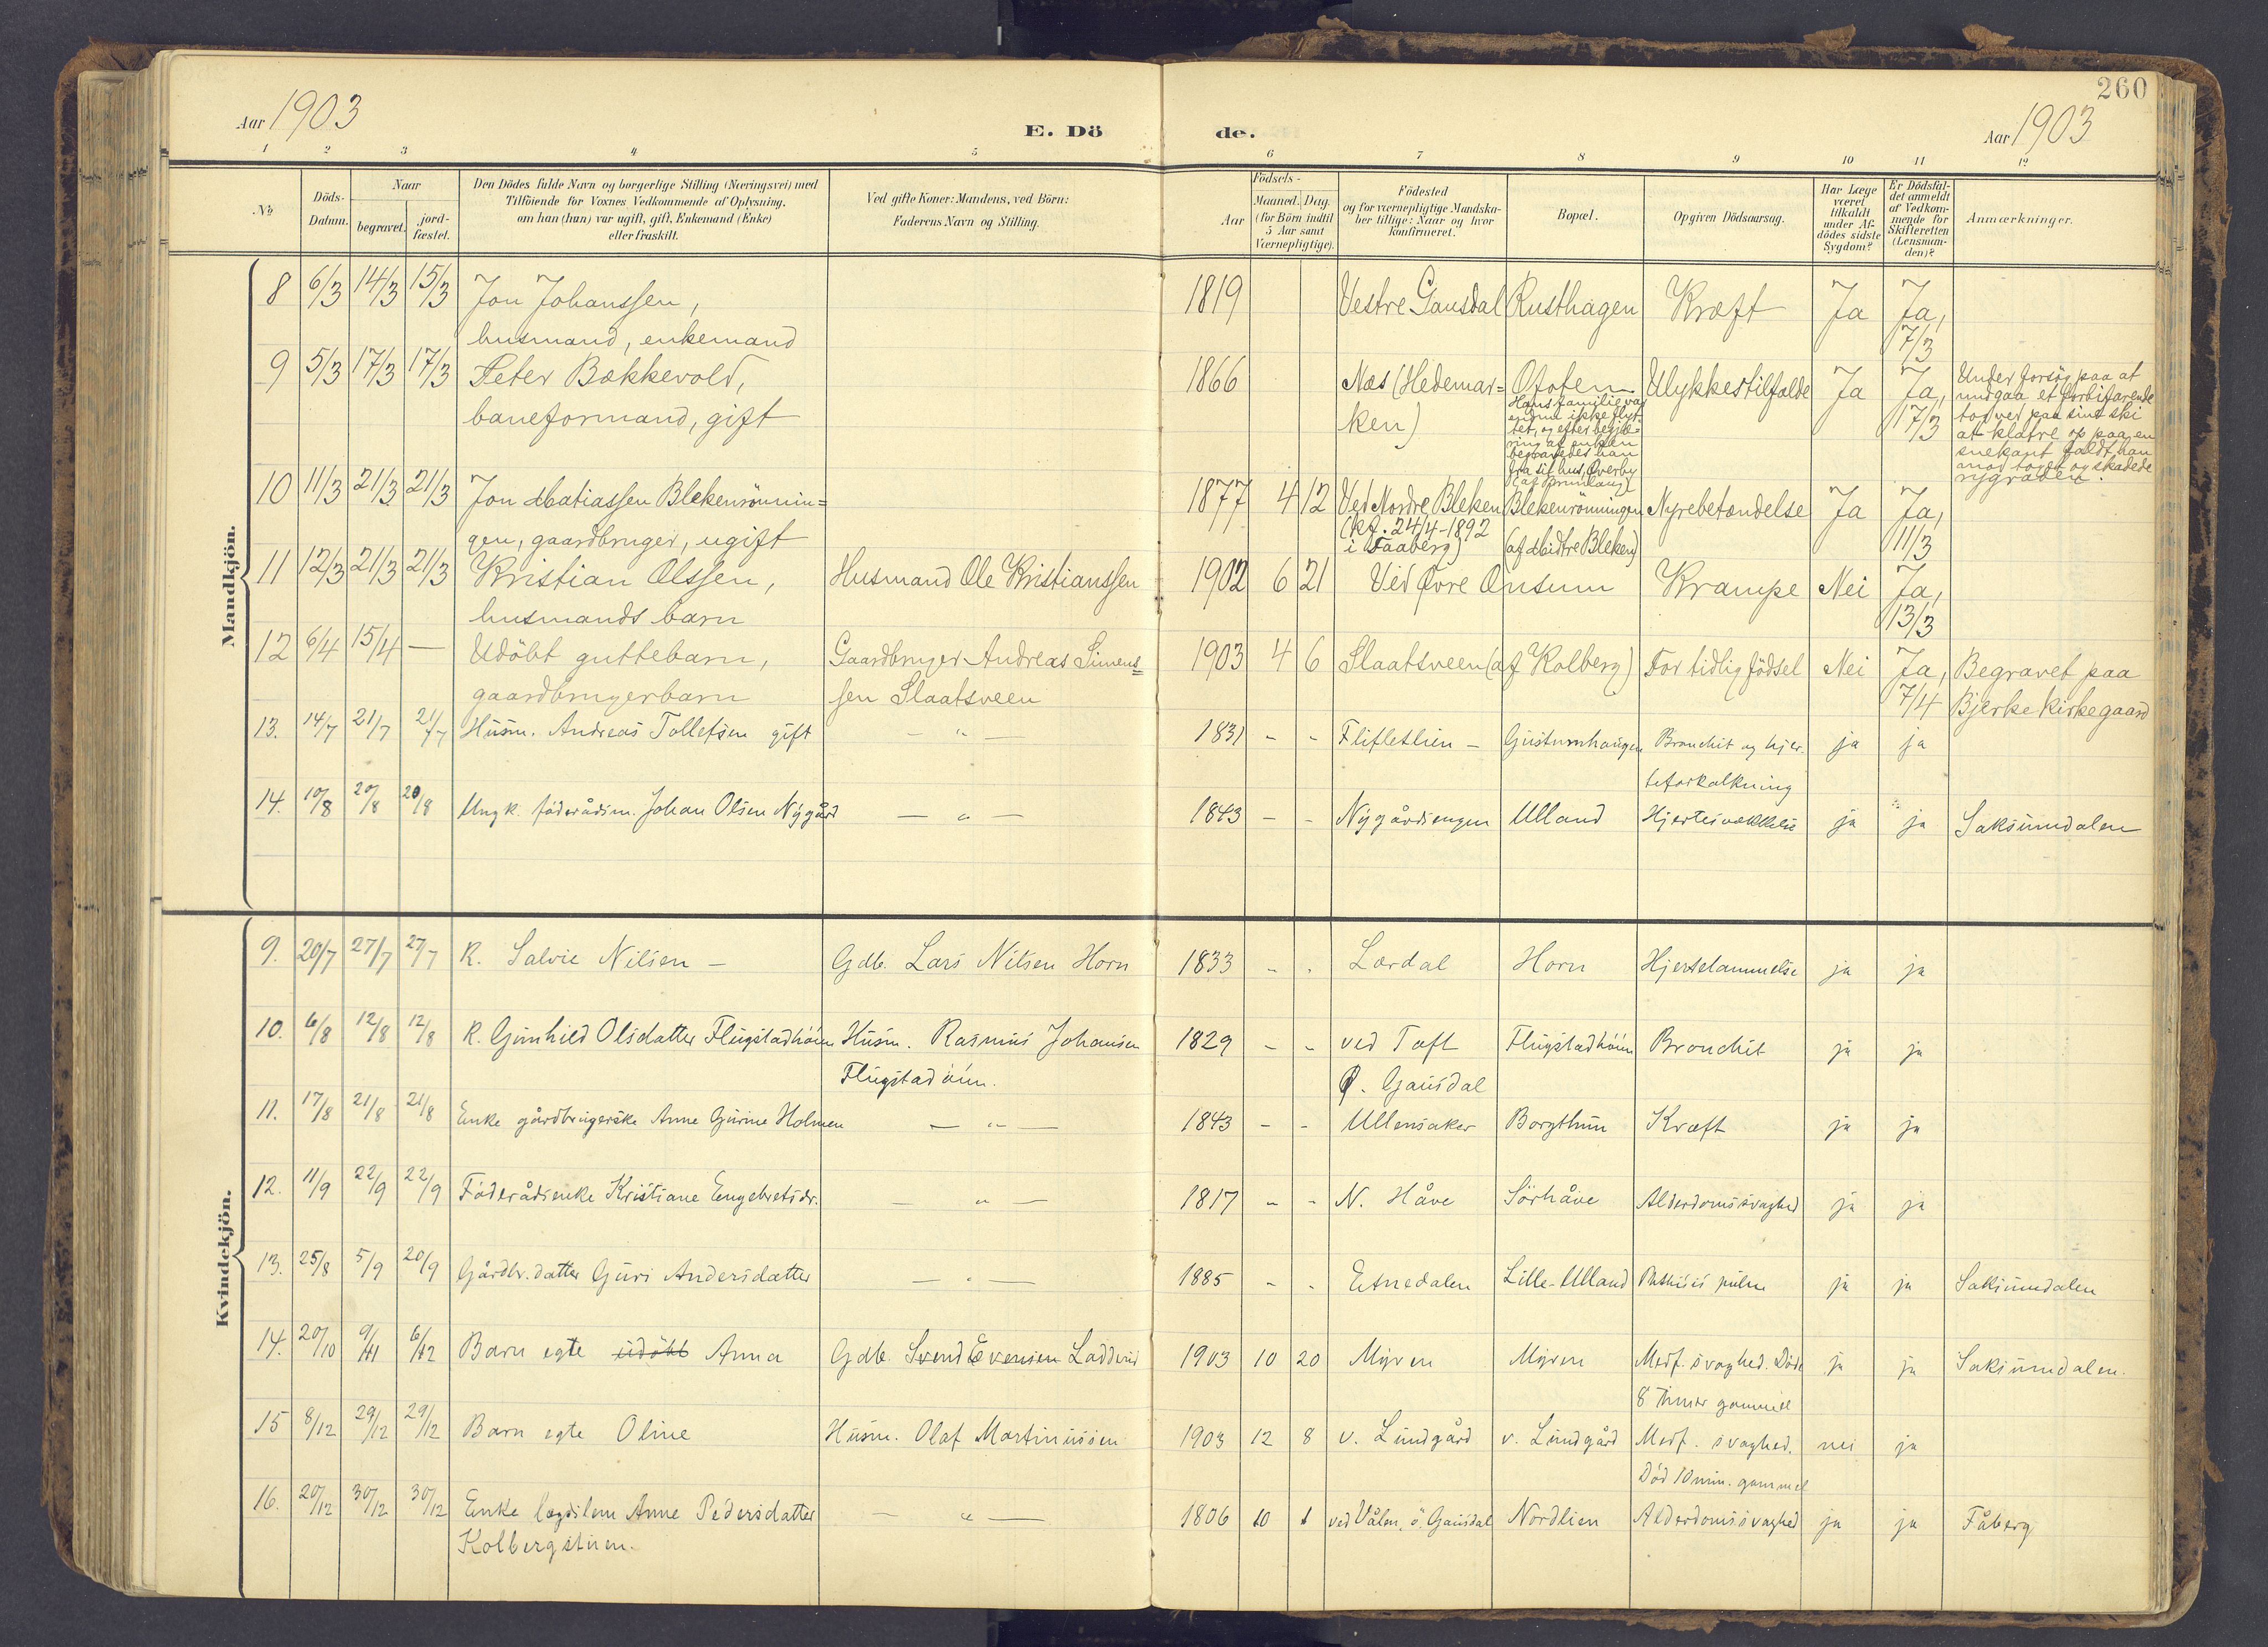 260
Aar 1903
E. Dö de.
Aar 1903
1 2 3 4 5 6 7 8 9 10 11 12
No
Döds-
Datum.
Naar
begravet.
jord-
fæstet.
Den Dödes fulde Navn og borgerlige Stilling (Næringsvei) med
Tilföiende for Voxnes Vedkommende af Oplysning,
om han (hun) var ugift, gift, Enkemand (Enke)
eller fraskilt.
Ved gifte Koner: Mandens, ved Börn:
Faderens Navn og Stilling.
Födsels-
Aar
Maaned. Dag.
(for Börn indtil
5 Aar samt
Værnepligtige).
Födested
og for værnepligtige Mandska-
ber tillige: Naar og hvor
konfirmeret.
Bopæl.
Opgiven Dödsaarsag.
Har Læge
været
tilkaldt
under Af-
dödes sidste
Sygdom?
Er Dödsfal-
det anmeldt
af Vedkom-
mende for
Skifteretten
(Lensman-
den)?
Anmærkninger.
Mandkjön.
8 6/3 14/3 15/3 Jon Johanssen, 1819 Vestre Gausdal Rusthagen Kræft Ja Ja,
husmand, enkemand 7/3
9 5/3 17/3 17/3 Peter Bækkevold, 1866 Næs (Hedemar= Ofoten Ulykkestilfælde Ja Ja,
baneformand, gift ken) 17/3
Hans familie var
endnu ikke flyt
tet, og efter begjæ-
ring af enken
begravedes han
fra sit hus, Överby
af Brunlaug
Under forsög paa at
undgaa et forbifarende
tog ved paa sine ski
at klatre op paa en
snekant faldt han
mod toget og skadede
rygraden.
10 11/3 21/3 21/3 Jon Matiassen Blekenrönnin= 1877 4 12 Ved Nordre Bleken Blekenrönningen Nyrebetændelse Ja Ja,
gen, gaardbruger, ugift (kf. 24/4-1892 (af Midtre Bleken) 11/3
i Faaberg)
11 12/3 21/3 21/3 Kristian Olssen, Husmand Ole Kristianssen 1902 6 21 Ved Øvre Onsum Krampe Nei Ja,
husmands barn 13/3
12 6/4 15/4 — Udöbt guttebarn, Gaardbruger Andreas Simens= 1903 4 6 Slaatsveen (af Kolberg) For tidlig födsel Nei Ja, Begravet paa
gaardbrugerbarn sen Slaatsveen 7/4 Bjerke Kirkegaard
13. 14/7 21/7 21/7 Husm. Andreas Tollefsen gift — " — 1831 - - Fliflethien - Gustumhaugen Bronchit og hjer-
teforkalkning ja ja
14. 10/8 20/8 20/8 Ungk. föderådsm. Johan Olsen Nygård — " — 1843 - - Nygårdsengen Ulland Hjertesvækkelse ja ja Saksumdalen
Kvindekjön.
9. 20/7 27/7 27/7 K. Salvie Nilsen - Gdb. Lars Nilsen Horn 1833 - - Lærdal Horn Hjertelammelse ja ja
10. 6/8 12/8 12/8 K. Gunhild Olsdatter Flugstadhöim Husm. Rasmus Johansen 1829 - - ved Toft Flugstadhöim Bronchit ja ja
Flugstadöim. Ø. Gausdal
11. 17/8 21/8 21/8 Enke gårdbrugerske Anne Gurine Holmen — " — 1843 - - Ullensaker Borgthun Kræft ja ja
12. 11/9 22/9 22/9 Föderådsenke Kristiane Engebretsdr. — " — 1817 - - N. Håve Sörhåve Alderdomssvaghed ja ja
13. 25/8 5/9 20/9 Gårdbr. datter Guri Andersdatter — " — 1885 - - Etnedalen Lille-Ulland Phthisis pulm ja ja Saksumdalen
14. 20/10 9/11 6/12 Barn egte udöbt Anna Gdb. Svend Evensen 1903 10 20 Myren Myren Medf. svaghed. Död ja ja Saksumdalen.
8 timer gammel
15 8/12 29/12 29/12 Barn egte Oline Husm. Olaf Martinussen 1903 12 8 v. Lundgård v. Lundgård Medf. svaghed. nei ja
Död 10 min. gammel
16. 20/12 30/12 30/12 Enke lægdslem Anne Pedersdatter — " — 1806 10 1 ved Vålen, ö. Gausdal Nordlien Alderdomssvaghed ja ja Fåberg
Kolbergstuen.